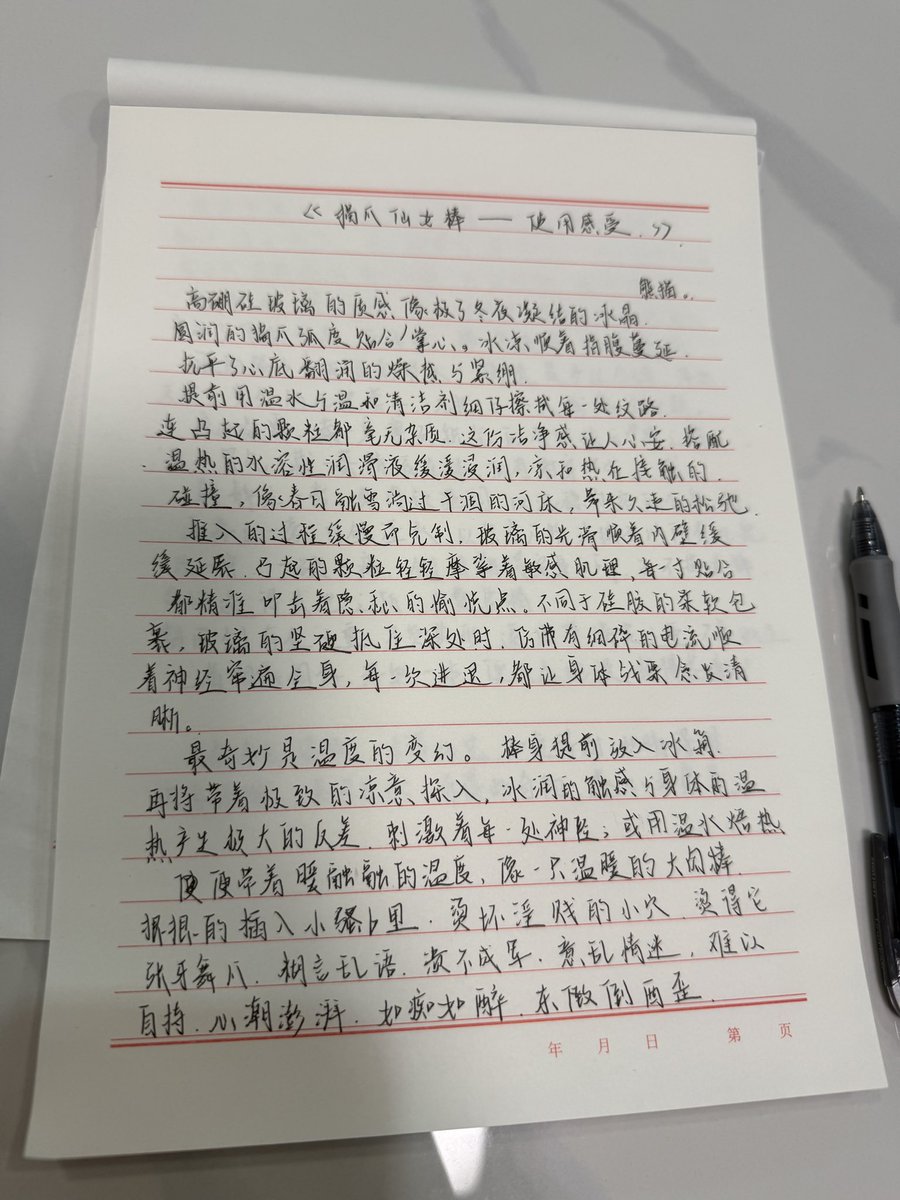 《猫爪仙女棒——使用感受.》.
熊猫。
高硼硅玻璃的质感像极了冬夜凝结的冰晶.
圆润的猫爪弧度贴合掌心。冰凉顺着指腹蔓延.
抚平了心底翻涌的燥热与紧绷.
提前用温水与温和清洁剂细仔擦拭每一处纹路.
连凸起的颗粒都毫无杂质.这份洁净感让人心安.搭配
温热的水溶性润滑液缓缓浸润,凉和热在接触的.
碰撞,像春日融雪淌过干涸的河床,带来久违的松弛.
推入的过程缓慢而克制.玻璃的光滑顺着内壁缓
缓延展.凸起的颗粒轻轻摩挲着敏感肌理,每一寸贴合
都精准叩击着隐秘的愉悦点.不同于硅胶的柔软包
裹,玻璃的坚硬抵住深处时.仿带有细碎的电流顺
着神经窜遍全身,每一次进退,都让身体战栗愈发清
晰。
最奇妙是温度的变幻。棒身提前放入冰箱.
再将带着极致的凉意探入,冰润的触感与身体的温
热产生极大的反差.刺激着每一处神经;或用温水焐热
便带着暖融融的温度,像一只温暖的大肉棒.
狠狠的插入小骚b里.烫坏淫贱的小穴.烫得它
张牙舞爪.胡言乱语.溃不成军.意乱情迷,难以
自持.心潮澎湃.如痴如醉.东倒西歪.
年 月 日 第 页